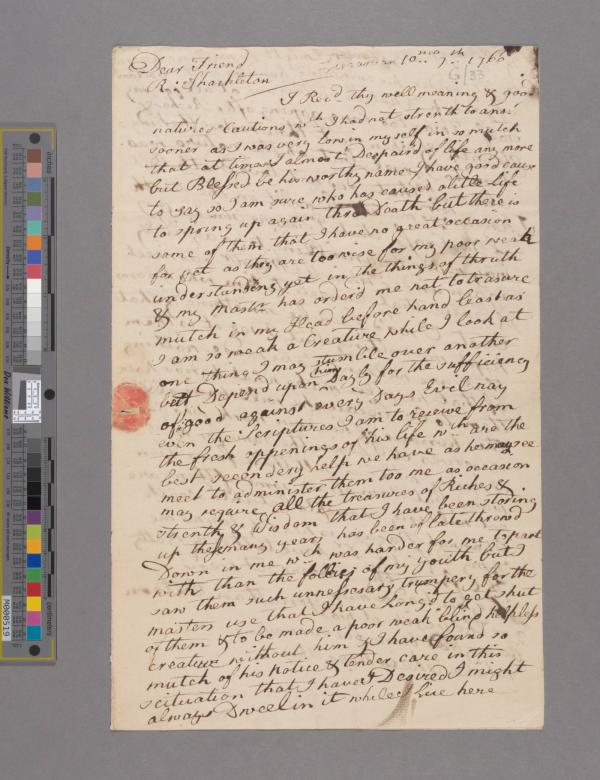 Dear Friend 10mo 7th 1766
R: Shackleton G/33
I Recd thy well meaning & good
natured Cautions wch I had not strenth to ansr
sooner as I was very low in my self in so mutch
that at times I almost Despaird of life any more
but Blessed be his worthy name I have good cause
to say so I am sure who has caused a litle Life
to spring up again thro Death but there is
some of them that I have no great occasion
for yet as they are too wise for my poor weak
understanding yet in the things of thruth
& my Mastr has orderd me not to trasure
mutch in my Head before hand least as
I am so weak a Creature while I look at
one thing I may stumble over another
but Depend upon him Dayly for the sufficiency
of good against every Days Evil nay
even the Scriptures I am to receive from
the fresh oppenings of his life wch are the
best secondery help we have as he may see
meet to administer them too me as occasion
may require all the treasures of Riches &
strenth & Wisdom that I have been storing
up these many years has been of late throwd
Down in me wch was harder for me to part
with than the follies of my youth but I
saw them such unnessesary trumpery for the
masters use that I have Longd to get shut
of them & to be made a poor weak blind helpless
creature without him & I have found so
mutch of his notice & tender care in this
scituation that I have Desired I might
always Dweel in it while I Live here
M000519
inches
centimeters
Don Williams